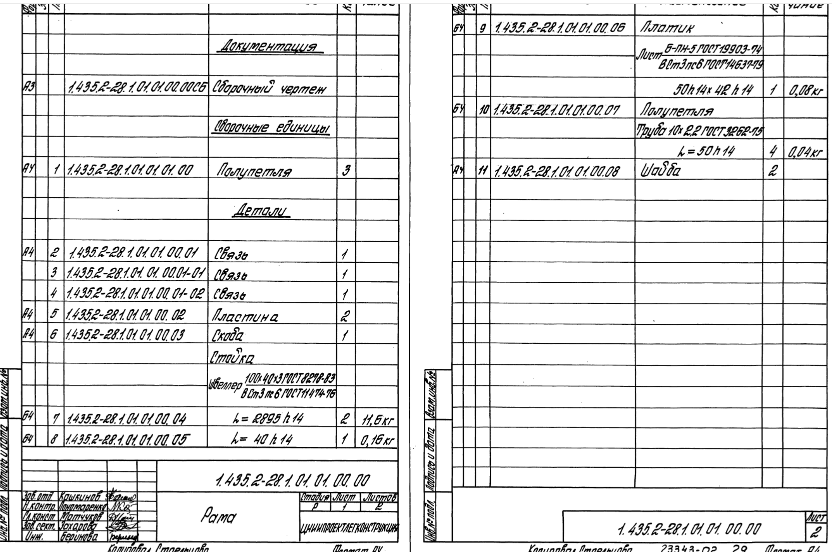 Документация
А3 1.435.2-28.1.01.01.00.00СБ Сборочный чертеж
Сборочные единицы
А4 1 1.435.2-28.1.01.01.01.00 Полупетля 3
Детали
А4 2 1.435.2-28.1.01.01.00.01 Связь 1
3 1.435.2-28.1.01.01.00.01-01 Связь 1
4 1.435.2-28.1.01.01.00.01-02 Связь 1
А4 5 1.435.2-28.1.01.01.00.02 Пластина 2
А4 6 1.435.2-28.1.01.01.00.03 Скоба 1
Стойка
Швеллер 100х40х3 ГОСТ 8278-83
ВСт3пс6 ГОСТ 11474-76
Б4 7 1.435.2-28.1.01.01.00.04 L= 2895 h14 2 11,6кг
Б4 8 1.435.2-28.1.01.01.00.05 L= 40 h14 1 0,16кг
1.435.2-28.1.01.01.00.00
Зав.отд Кашкинов
Н.контр Пономаренко
Зав.сект. Захарова
Инж.
Рама
Стадия Лист Листов
Р 1 2
ЦНИИПРОЕКТЛЕГКОНСТРУКЦИЯ
Копировал Стрельцова Формат А4
Б4 9 1.435.2-28.1.01.01.00.06 Платик
Лист Б-ПН-5 ГОСТ 19903-74
ВСт3пс6 ГОСТ 14637-79
50h14х42h14 1 0,08кг
Б4 10 1.435.2-28.1.01.01.00.07 Полупетля
Труба 10х2,2 ГОСТ 3262-75
L=50h14 4 0,04кг
А4 11 1.435.2-28.1.01.01.00.08 Шайба 2
1.435.2-28.1.01.01.00.00
Лист
2
Копировал Стрельцова 23343-02 29 Формат А4